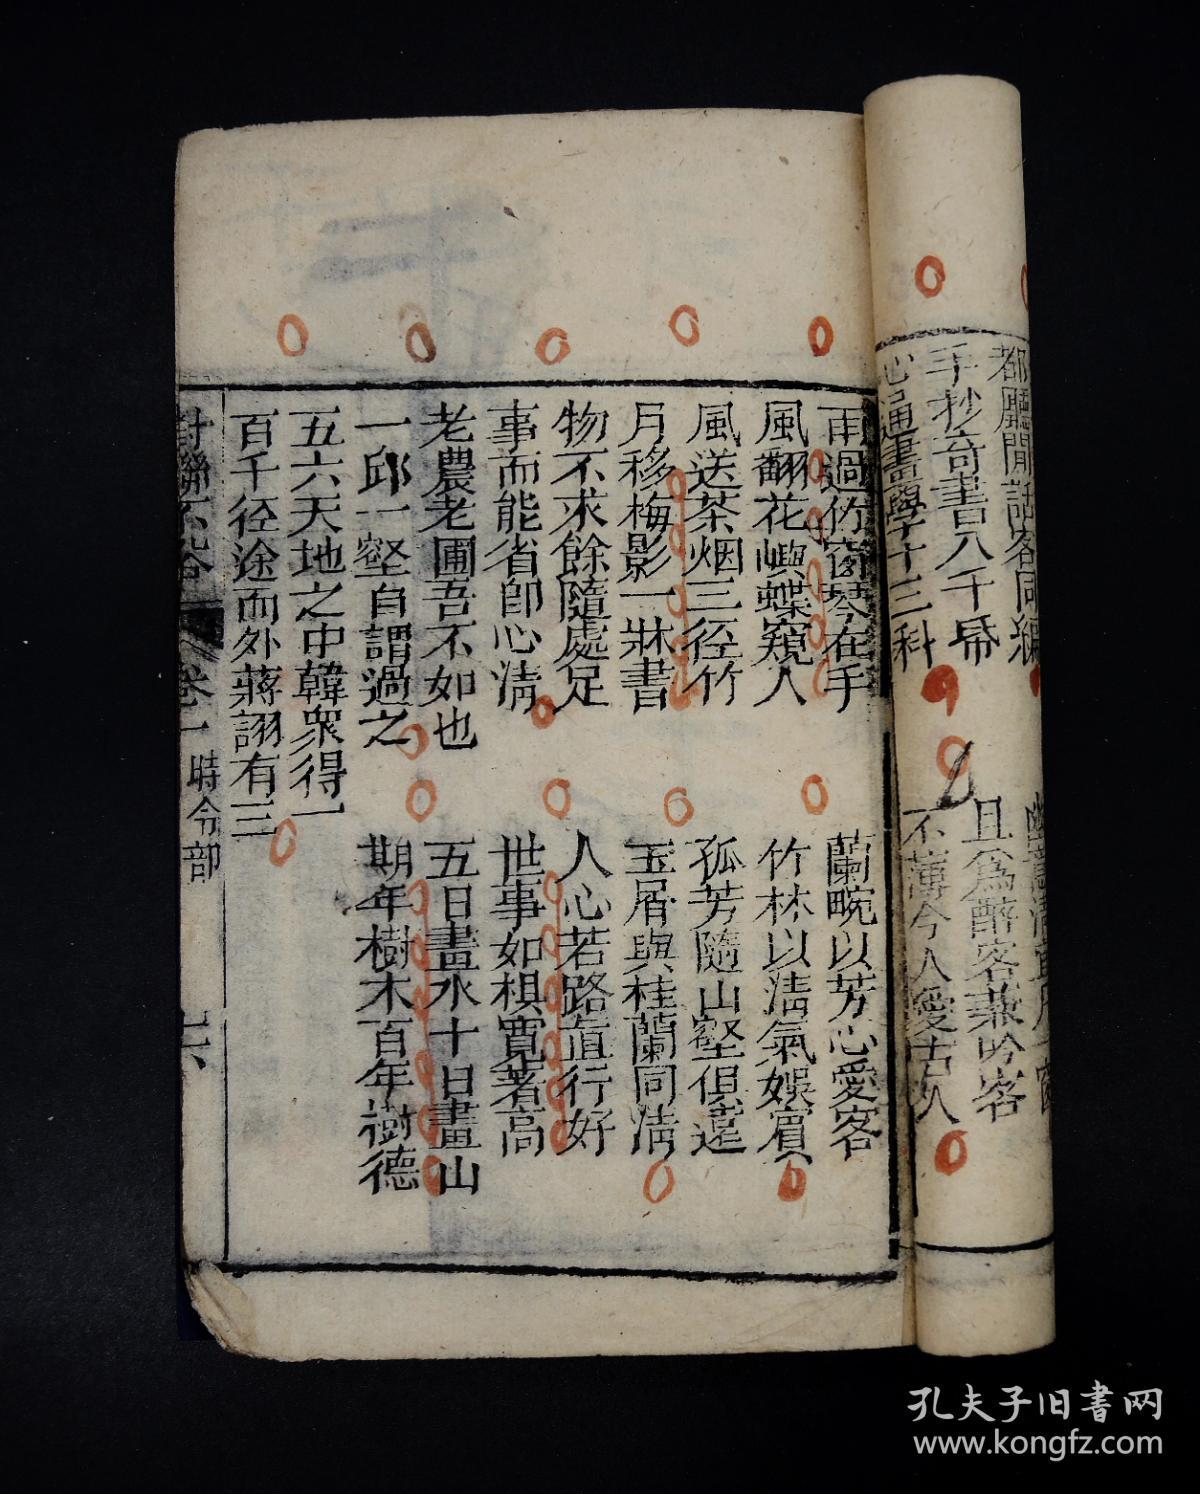 手抄奇書八千帋
心通畫學十三科
且爲醉客兼吟客
不薄今人愛古人
雨過竹窗琴在手
風翻花嶼蝶窺人
風送茶烟三径竹
月移梅影一牀書
物不求餘隨處足
事而能省卽心淸
老農老圃吾不如也
一邱一壑自謂過之
五六天地之中韓衆得一
百千径途而外蔣詡有三
蘭畹以芳心愛客
竹林以淸氣娛賓
孤芳隨山壑俱遠
玉屑與桂蘭同淸
人心若路直行好
世事如棋寬著高
五日畫水十日畫山
期年樹木百年樹德
對聯不俗 卷一 時令部
孔夫子旧書网
www.kongfz.com